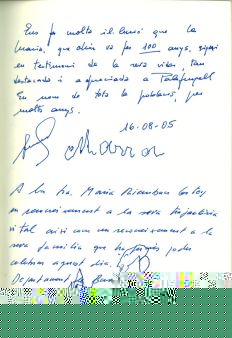 Ens fa molta il·lusió que la
Maria, que avui va fer 100 anys, sigui
en testimoni de la seva vida, tan
destacada i apreciada a Palafrugell
En nom de tota la població, per
molts anys.
16-08-05
A la Sra. Maria
en reconeixement a la seva trajectòria
vital així com un reconeixement a la
seva família que ha permès poder
celebrar aquest dia.
Departament de